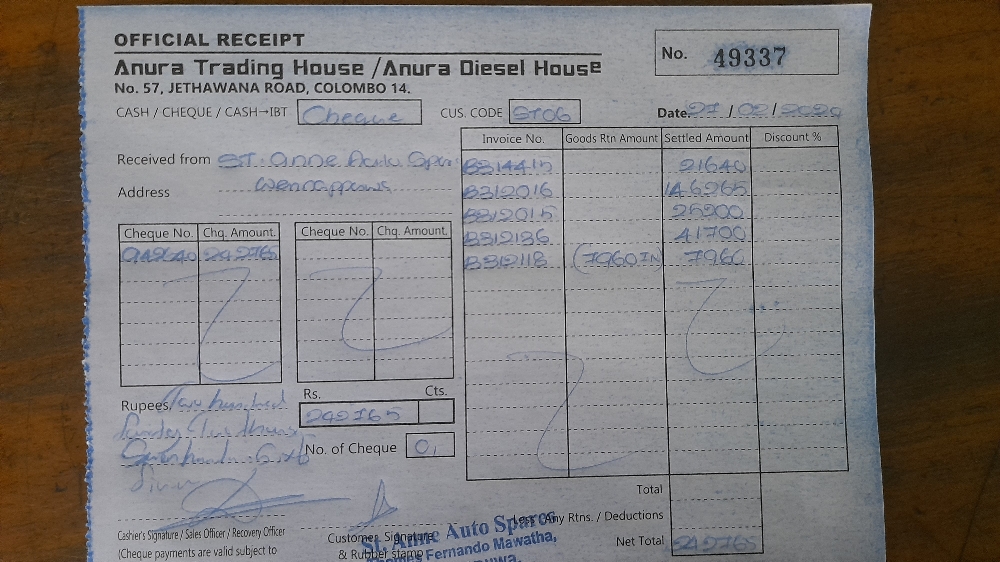 OFFICIAL RECEIPT
No. 49337
Anura Trading House / Anura Diesel House
No. 57, JETHAWANA ROAD, COLOMBO 14.
CASH / CHEQUE / CASH→IBT Cheque CUS. CODE ST06 Date 27 / 02 / 2020
Invoice No. Goods Rtn Amount Settled Amount Discount %
Received from ST. Anne Auto Spar
Address
B314415 21640
B312016 146265
B312015 25200
B312136 41700
B312118 (7960IN 7960
Cheque No. Chq. Amount. Cheque No. Chq. Amount.
942640 242765
Rs. Cts.
Rupees Two hundred
242765
No. of Cheque 01
Total
Less: Any Rtns. / Deductions
Net Total 242765
Cashier's Signature / Sales Officer / Recovery Officer
Customer Signature
& Rubber stamp
(Cheque payments are valid subject to
St. Anne Auto Spares
Thomes Fernando Mawatha,